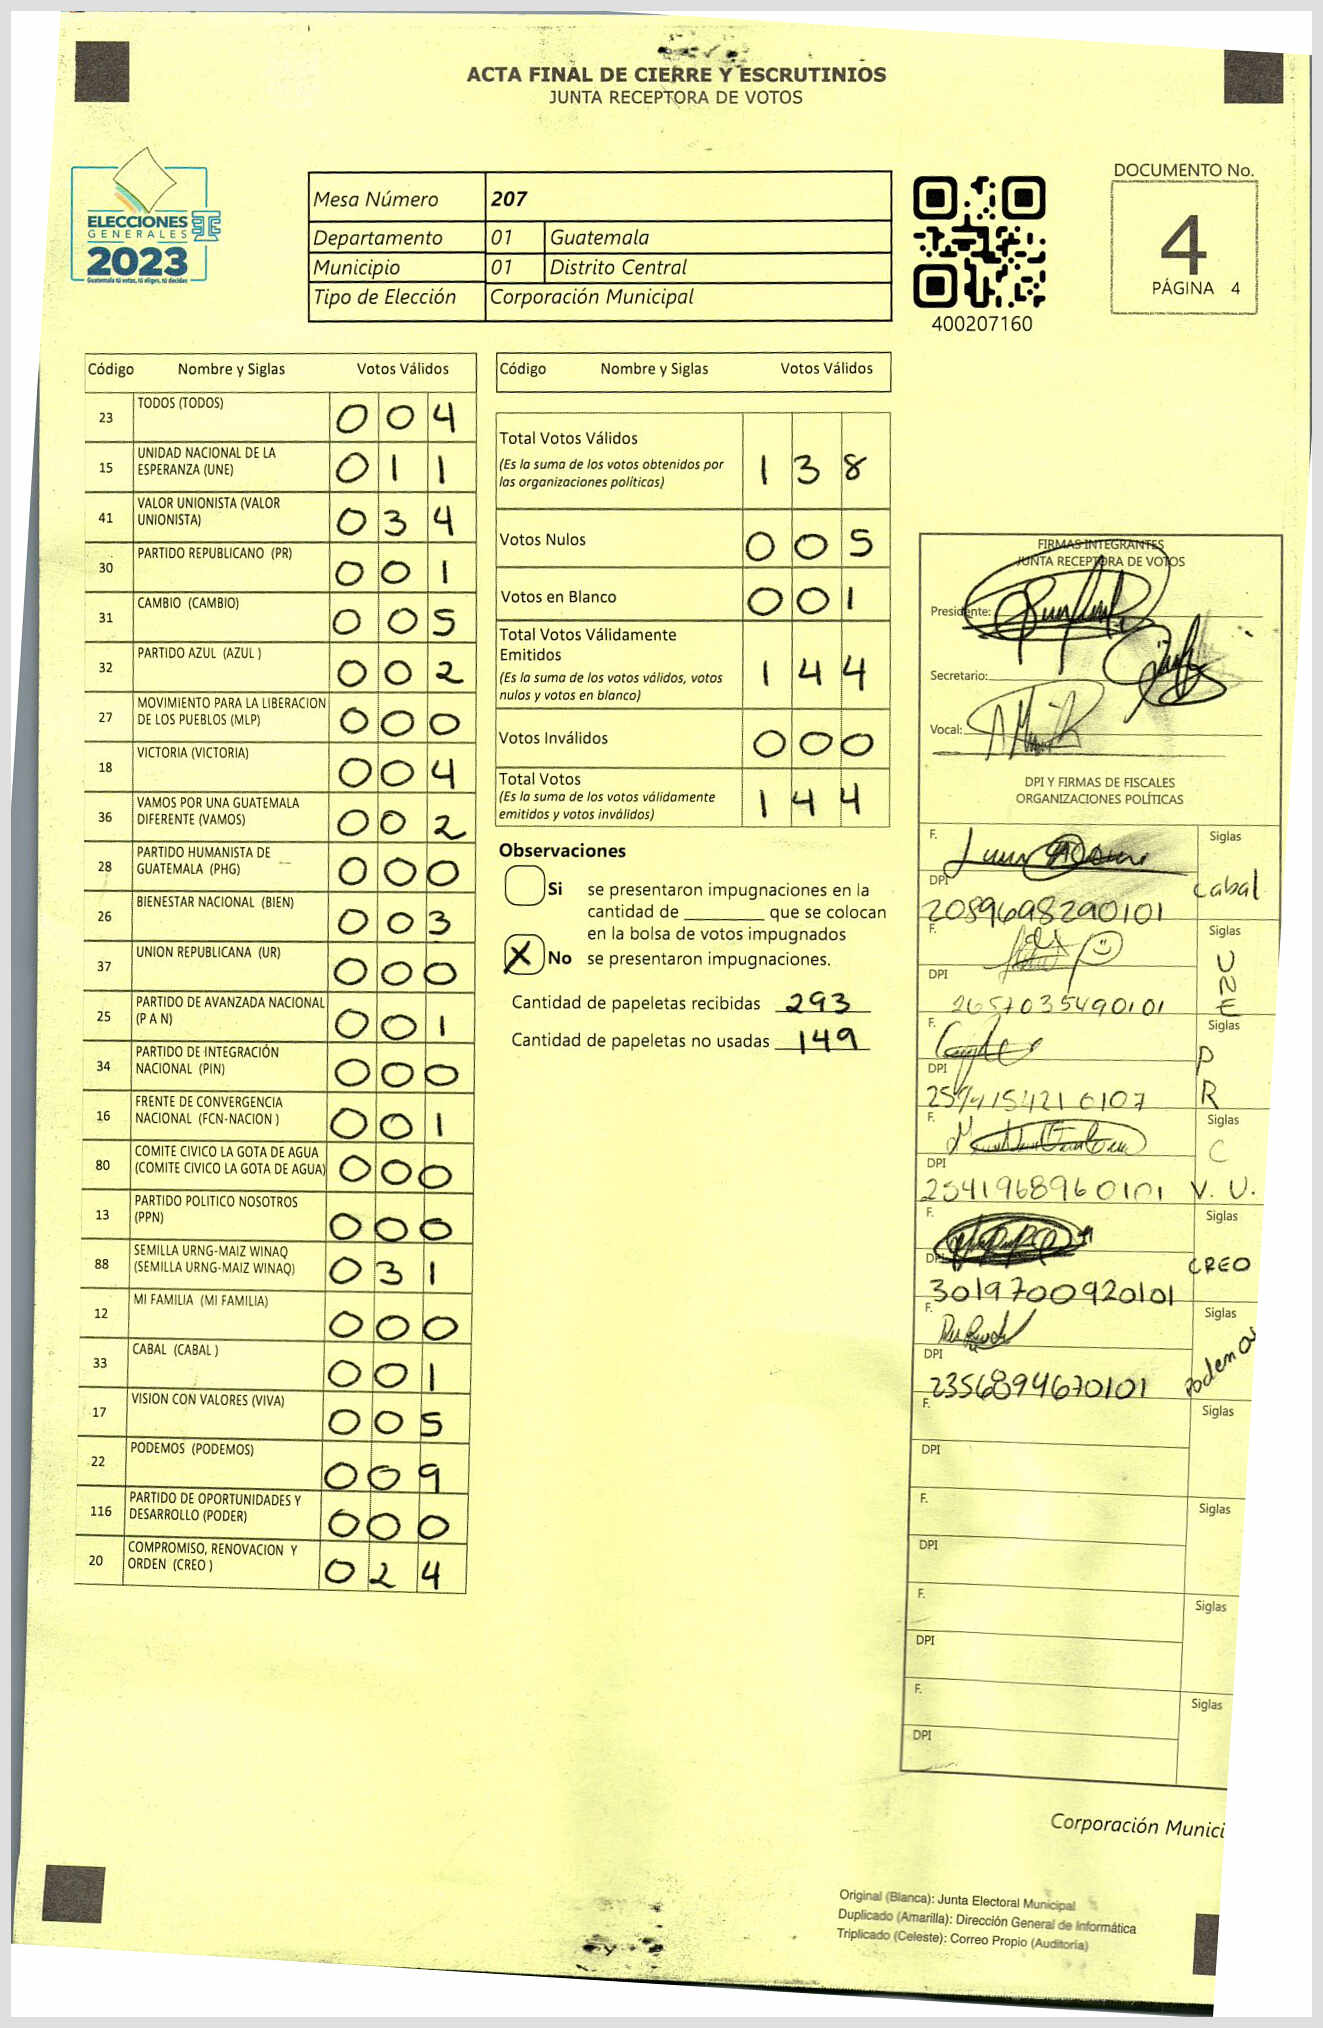 ACTA FINAL DE CIERRE Y ESCRUTINIOS
JUNTA RECEPTORA DE VOTOS
ELECCIONES
GENERALES
2023
Guatemala tú votas, tú eliges, tú decides
Mesa Número 207
Departamento 01 Guatemala
Municipio 01 Distrito Central
Tipo de Elección Corporación Municipal
400207160
DOCUMENTO No.
4
PÁGINA 4
Código Nombre y Siglas Votos Válidos
23 TODOS (TODOS) 0 0 4
15 UNIDAD NACIONAL DE LA
ESPERANZA (UNE) 0 1 1
41 VALOR UNIONISTA (VALOR
UNIONISTA) 0 3 4
30 PARTIDO REPUBLICANO (PR) 0 0 1
31 CAMBIO (CAMBIO) 0 0 5
32 PARTIDO AZUL (AZUL ) 0 0 2
27 MOVIMIENTO PARA LA LIBERACION
DE LOS PUEBLOS (MLP) 0 0 0
18 VICTORIA (VICTORIA) 0 0 4
36 VAMOS POR UNA GUATEMALA
DIFERENTE (VAMOS) 0 0 2
28 PARTIDO HUMANISTA DE
GUATEMALA (PHG) 0 0 0
26 BIENESTAR NACIONAL (BIEN) 0 0 3
37 UNION REPUBLICANA (UR) 0 0 0
25 PARTIDO DE AVANZADA NACIONAL
(P A N) 0 0 1
34 PARTIDO DE INTEGRACIÓN
NACIONAL (PIN) 0 0 0
16 FRENTE DE CONVERGENCIA
NACIONAL (FCN-NACION ) 0 0 1
80 COMITE CIVICO LA GOTA DE AGUA
(COMITE CIVICO LA GOTA DE AGUA) 0 0 0
13 PARTIDO POLITICO NOSOTROS
(PPN) 0 0 0
88 SEMILLA URNG-MAIZ WINAQ
(SEMILLA URNG-MAIZ WINAQ) 0 3 1
12 MI FAMILIA (MI FAMILIA) 0 0 0
33 CABAL (CABAL ) 0 0 1
17 VISION CON VALORES (VIVA) 0 0 5
22 PODEMOS (PODEMOS) 0 0 9
116 PARTIDO DE OPORTUNIDADES Y
DESARROLLO (PODER) 0 0 0
20 COMPROMISO, RENOVACION Y
ORDEN (CREO ) 0 2 4
Código Nombre y Siglas Votos Válidos
Total Votos Válidos
(Es la suma de los votos obtenidos por
las organizaciones políticas) 1 3 8
Votos Nulos 0 0 5
Votos en Blanco 0 0 1
Total Votos Válidamente
Emitidos
(Es la suma de los votos válidos, votos
nulos y votos en blanco) 1 4 4
Votos Inválidos 0 0 0
Total Votos
(Es la suma de los votos válidamente
emitidos y votos inválidos) 1 4 4
Observaciones
Si se presentaron impugnaciones en la
cantidad de ________ que se colocan
en la bolsa de votos impugnados
X No se presentaron impugnaciones.
Cantidad de papeletas recibidas 293
Cantidad de papeletas no usadas 149
FIRMAS INTEGRANTES
JUNTA RECEPTORA DE VOTOS
Presidente:
Secretario:
Vocal:
DPI Y FIRMAS DE FISCALES
ORGANIZACIONES POLÍTICAS
F. Siglas
DPI Cabal
2089698290101
F. Siglas
DPI UNE
2657035490101
F. Siglas
DPI PR
F. Siglas
DPI C
2541968960101 V. U.
F. Siglas
DPI CREO
3019700920101
F. Siglas
DPI
2356894670101
F. Siglas
DPI
F. Siglas
DPI
F. Siglas
DPI
F. Siglas
DPI
Corporación Munici
Original (Blanca): Junta Electoral Municipal
Duplicado (Amarilla): Dirección General de Informática
Triplicado (Celeste): Correo Propio (Auditoría)